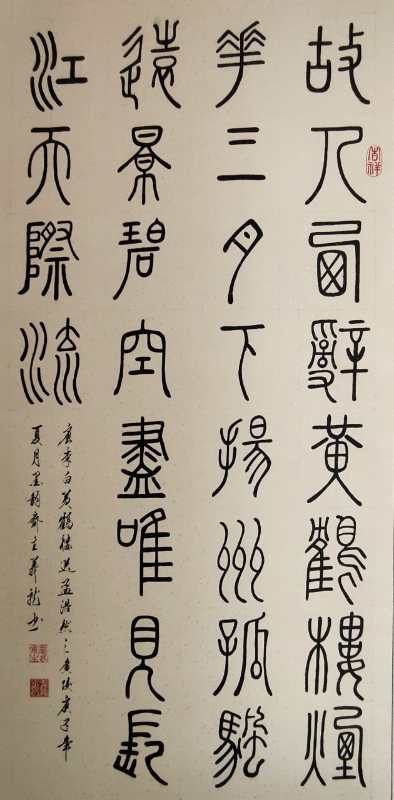 故人西辭黃鶴樓煙
華三月下揚州孤颿
遠景碧空盡唯見長
江天際流
唐李白黄鶴樓送孟浩然之廣陵庚子年
夏月墨韵齋主龍书
吉祥